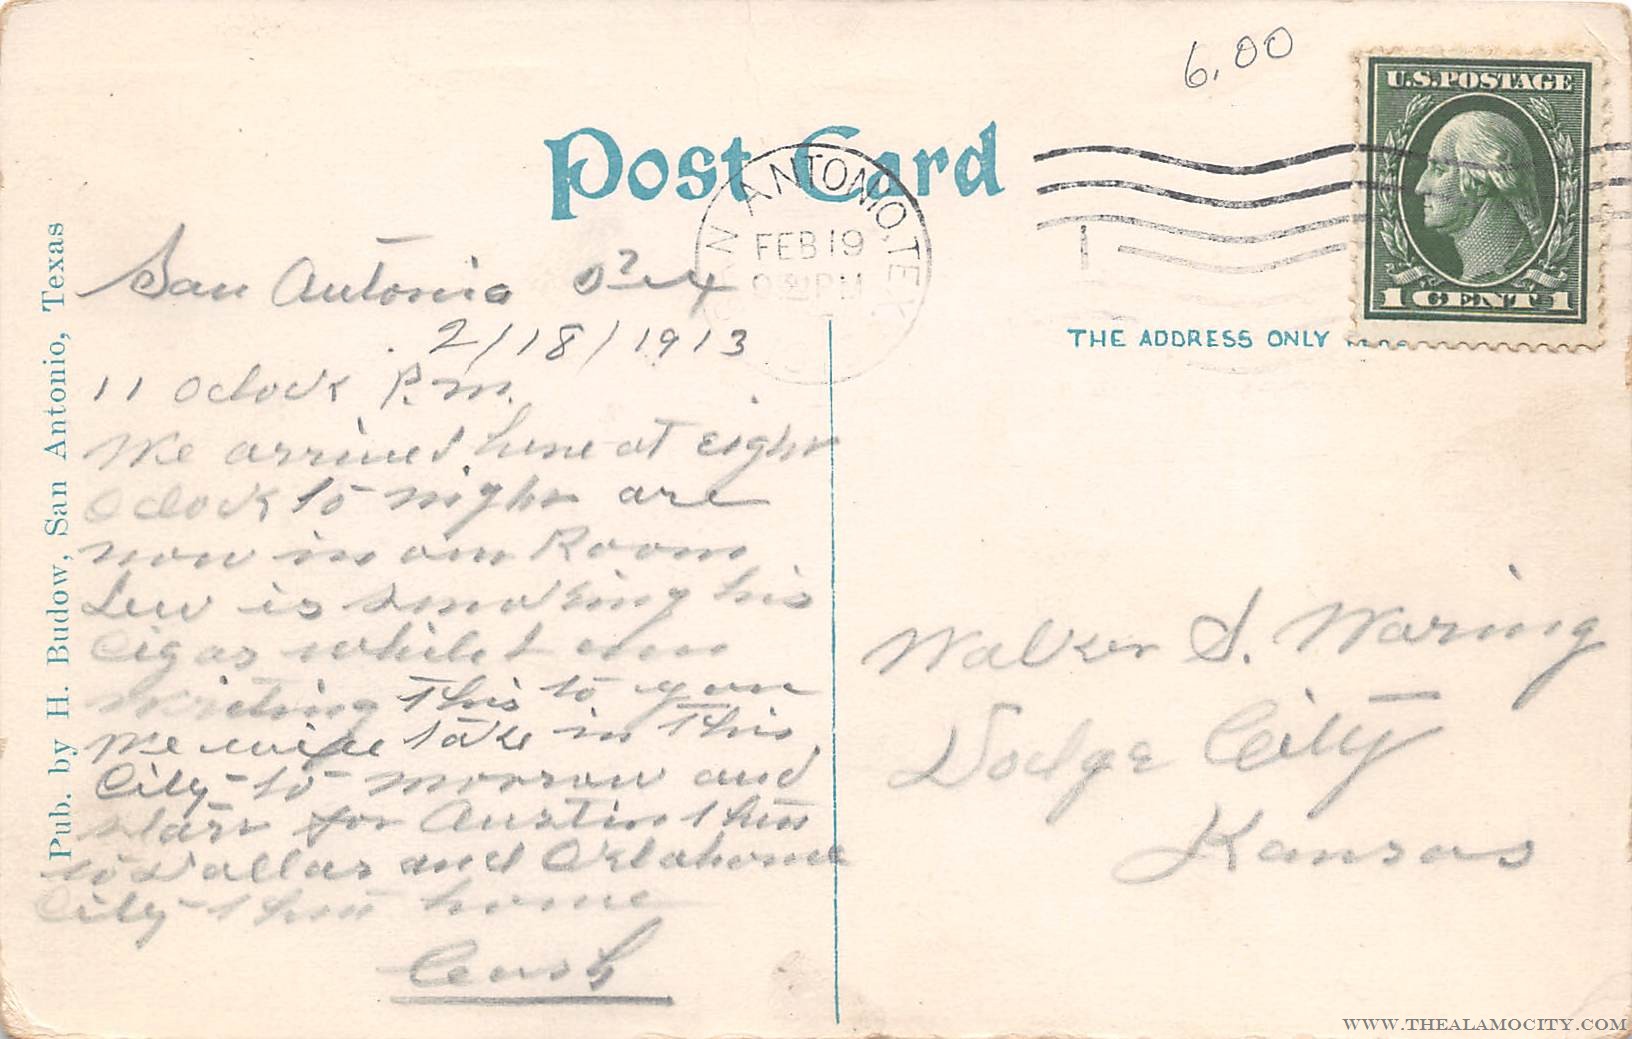 6.00
Post Card
SAN ANTONIO, TEX.
FEB 19
PM
1
U.S. POSTAGE
1 CENT 1
THE ADDRESS ONLY
Pub. by H. Budow, San Antonio, Texas
San Antonio
2/18/1913
11 Oclock P.m.
We arrived here at eight
Oclock to night are
now in our Room
Lew is smoking his
Cigar while I am
writing this to you
We will take in this
City to morrow and
start for Austin then
to Dallas and Oklahoma
City then home
Walker S. Waring
Dodge City
Kansas
WWW.THEALAMOCITY.COM